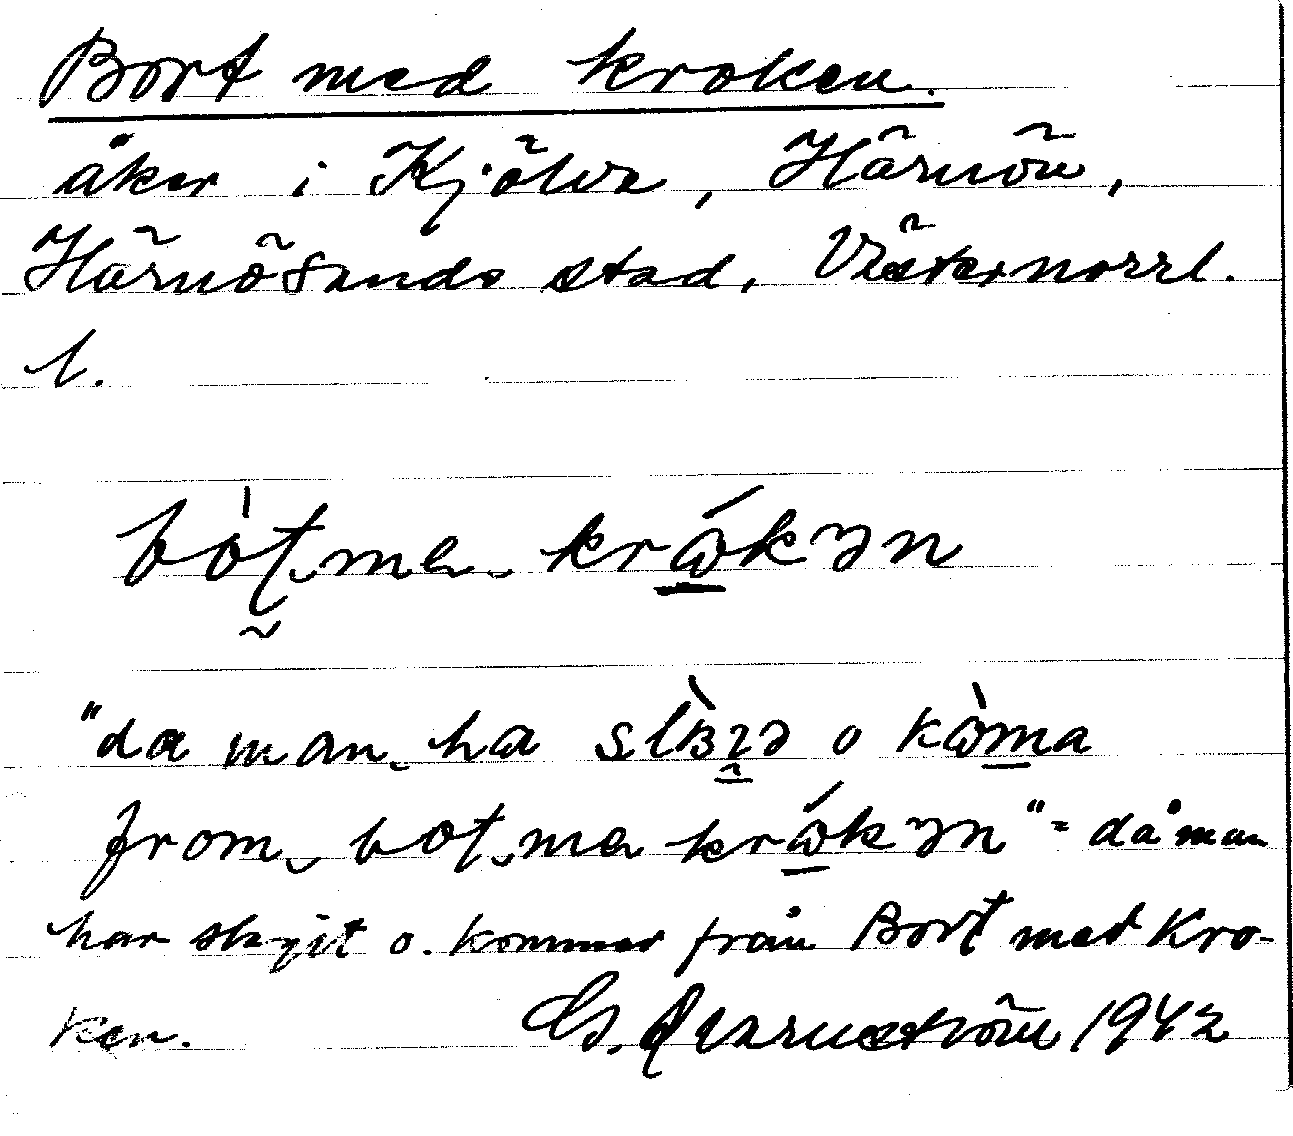 Bort med kroken.
åker i Kjölva, Härnön,
Härnösands stad, Västernorrl.
l.
bòt me krɷ́kən
"da man ha o kɷ̀ma
from bot me krɷ́kən" = då man
har slagit o. kommer från Bort med Kro-
ken. Es. Qvarnström 1942